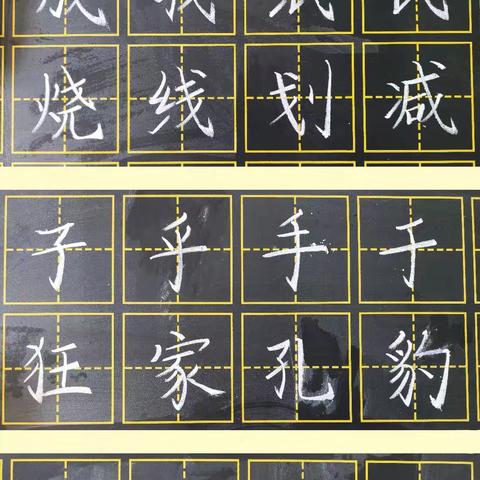 烧线划减
子乎手于
狂家孔豹